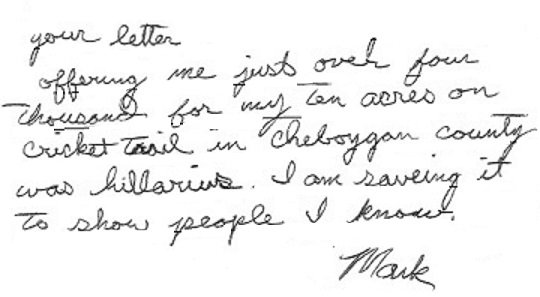 your letter
offering me just over four
thousand for my ten acres on
cricket trail in cheboygan county
was hillarius. I am saveing it
to show people I know.
Mark